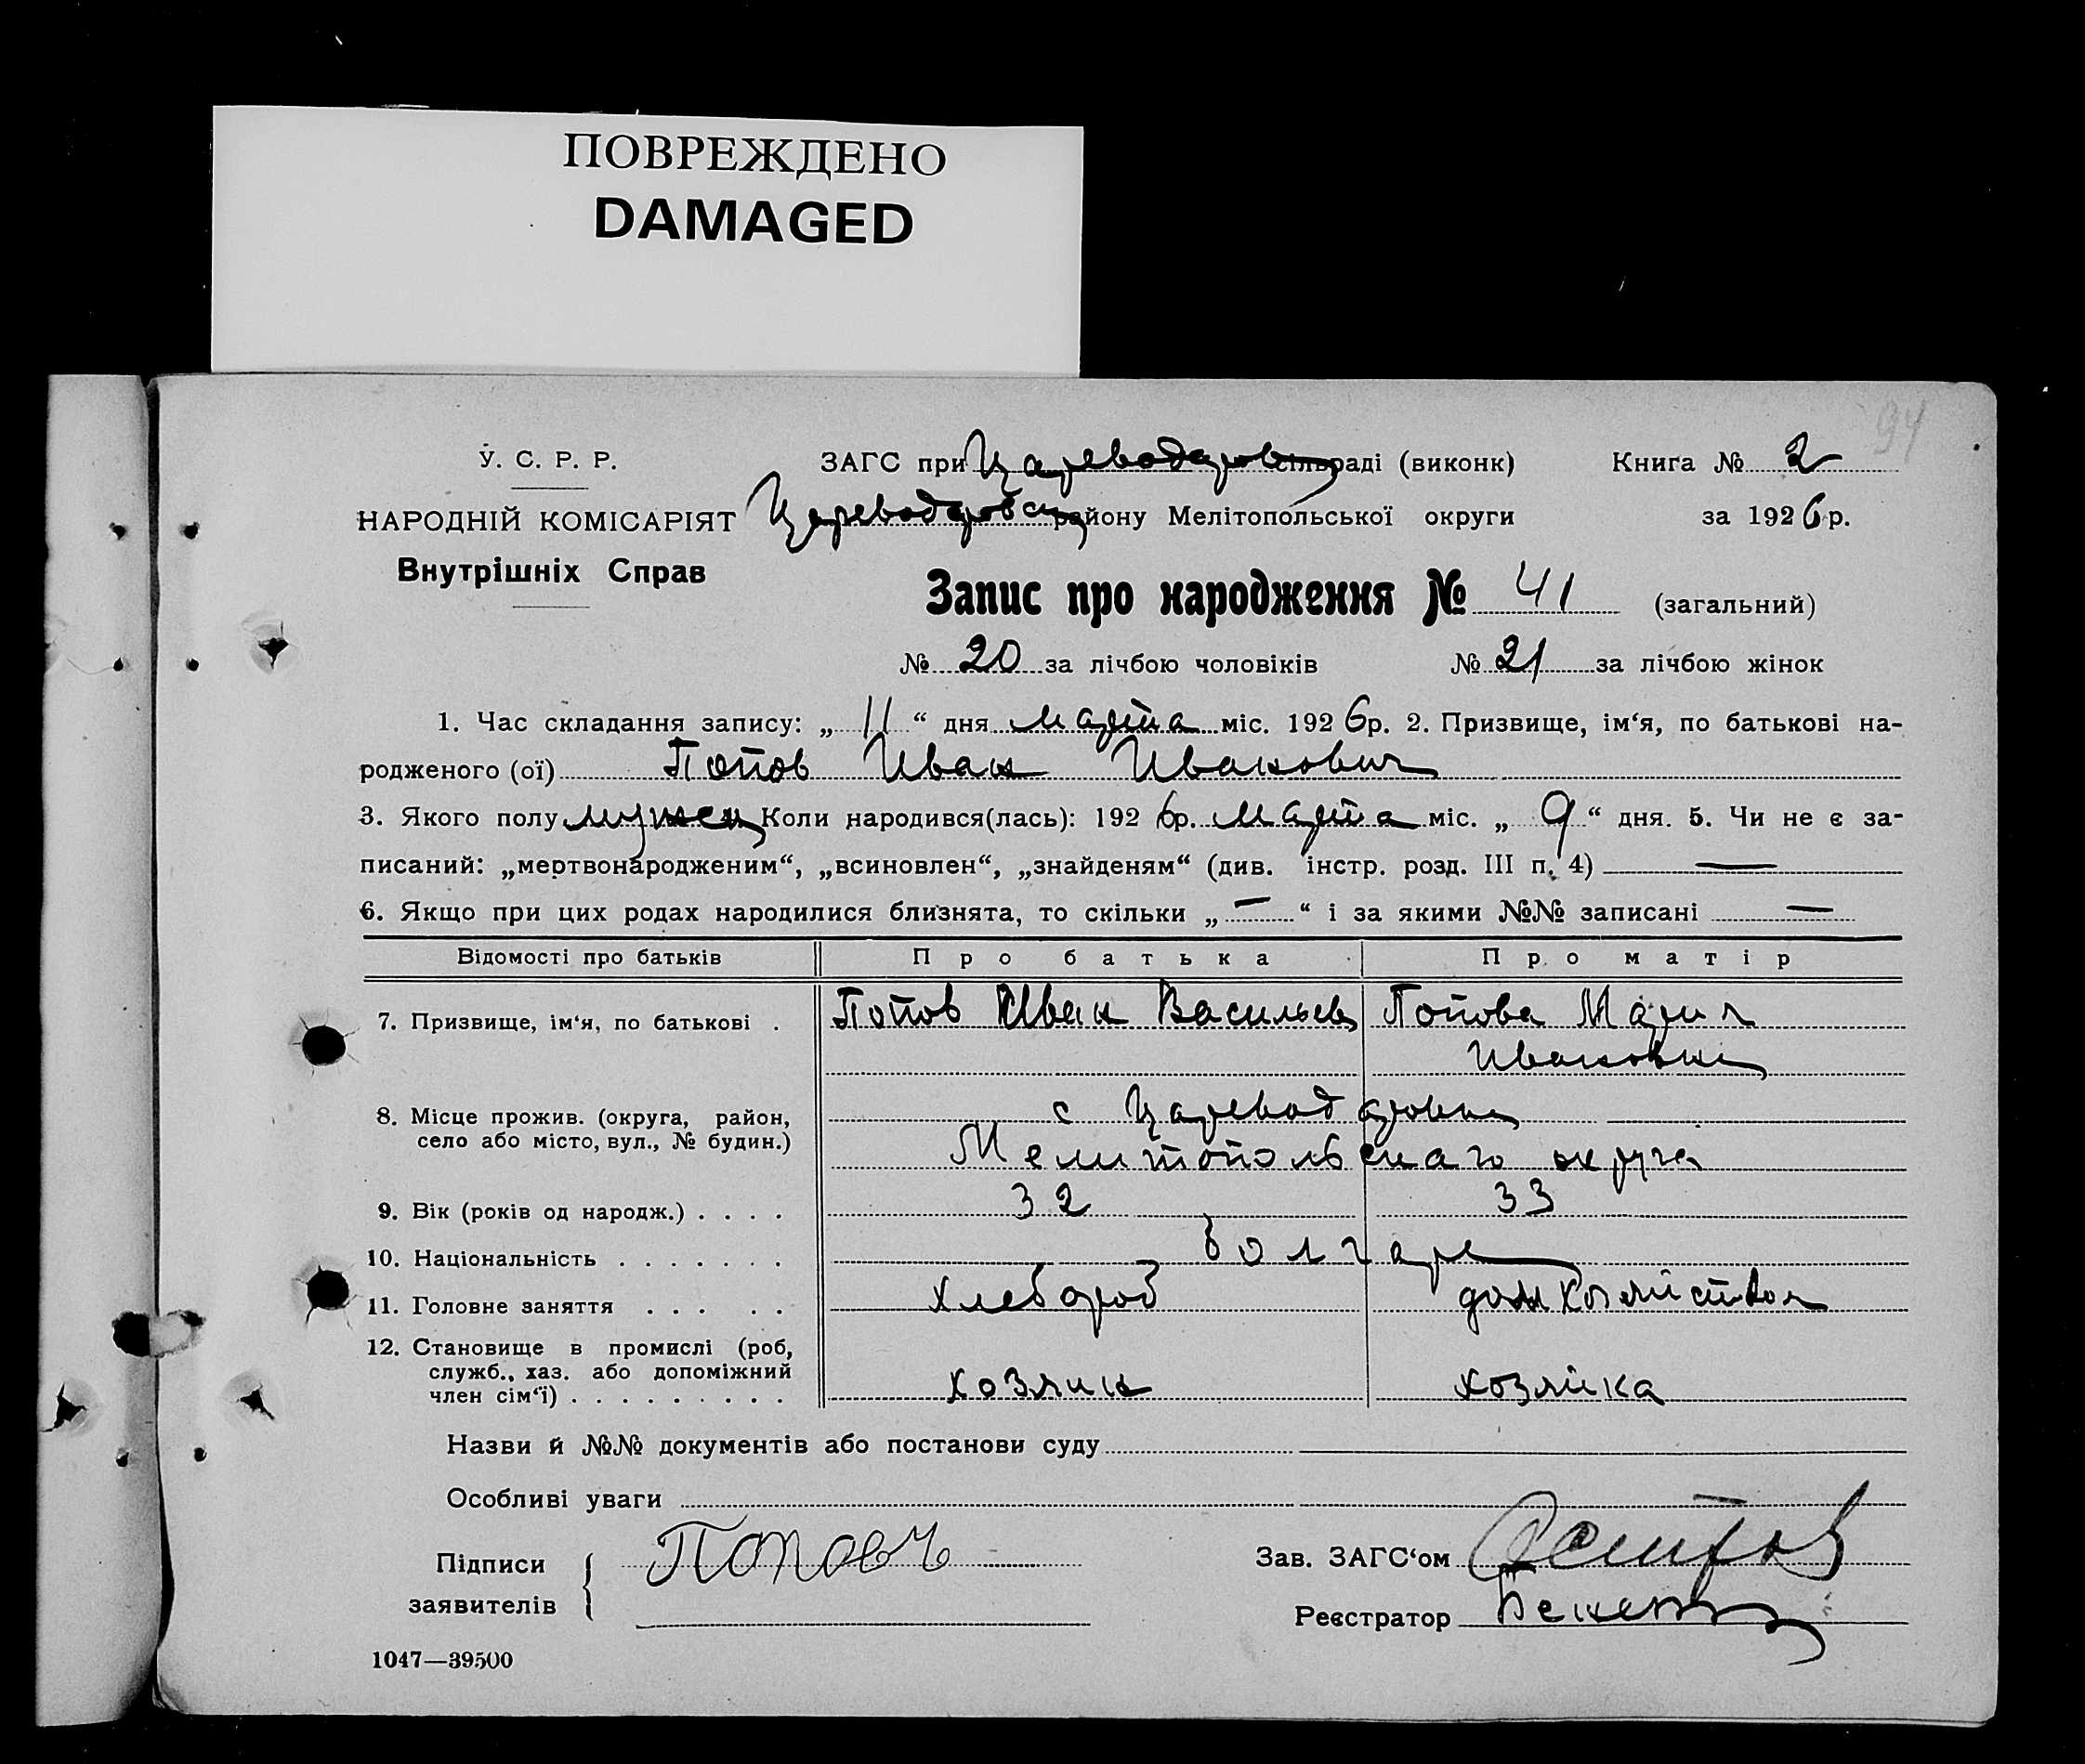 ПОВРЕЖДЕНО
DAMAGED
94
У. С. Р. Р.
ЗАГС при Цареводаров сільраді (виконк)
Книга № 2
НАРОДНІЙ КОМІСАРІЯТ
Цареводаровск району Мелітопольської округи
за 1926 р.
Внутрішніх Справ
Запис про народження № 41 (загальний)
№ 20 за лічбою чоловіків № 21 за лічбою жінок
1. Час складання запису: „ 11 “ дня марта міс. 1926р. 2. Призвище, ім‘я, по батькові на-
родженого (ої) Попов Иван Иванович
3. Якого полу мужск Коли народився(лась): 1926р. марта міс. „ 9 “ дня. 5. Чи не є за-
писаний: „мертвонародженим“, „всиновлен“, „знайденям“ (див. інстр. розд. III п. 4) —
6. Якщо при цих родах народилися близнята, то скільки „ — “ і за якими №№ записані —
Відомості про батьків Про батька Про матір
7. Призвище, ім‘я, по батькові . Попов Иван Васильев Попова Мария
Ивановна
8. Місце прожив. (округа, район, с Цареводаровка
село або місто, вул., № будин.) Мелитопольскаго округа
9. Вік (років од народж.) . . . . 32 33
10. Національність . . . . . . . болгаре
11. Головне заняття . . . . . хлебороб домхозяйством
12. Становище в промислі (роб,
служб., хаз. або допоміжний
член сім‘ї) . . . . . . . . . хозяин хозяйка
Назви й №№ документів або постанови суду
Особливі уваги
Підписи
заявителів
Поповъ
Зав. ЗАГС‘ом
Реєстратор
1047—39500